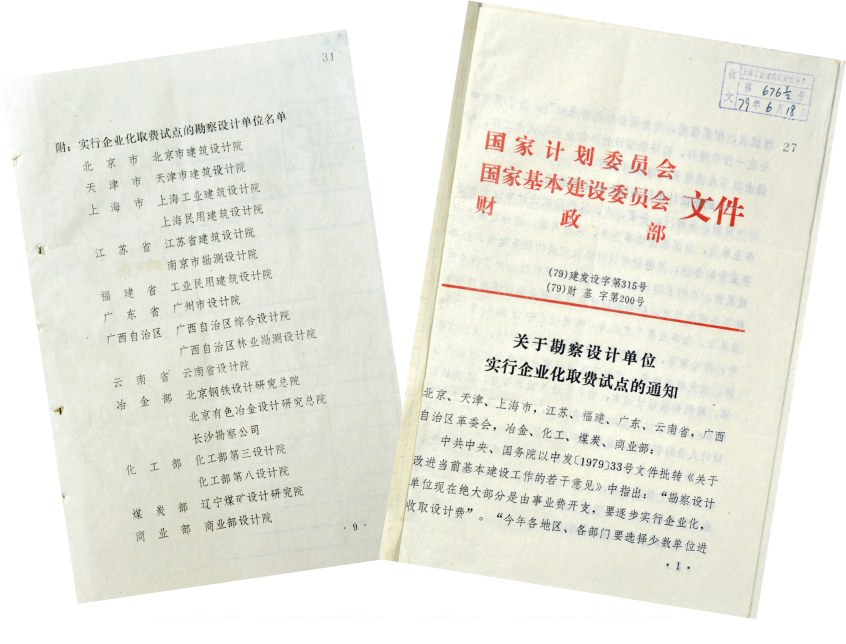 31
附：实行企业化取费试点的勘察设计单位名单
北京市 北京市建筑设计院
天津市 天津市建筑设计院
上海市 上海工业建筑设计院
上海民用建筑设计院
江苏省 江苏省建筑设计院
南京市勘测设计院
福建省 工业民用建筑设计院
广东省 广州市设计院
广西自治区 广西自治区综合设计院
广西自治区林业勘测设计院
云南省 云南省设计院
冶金部 北京钢铁设计研究总院
北京有色冶金设计研究总院
长沙勘察公司
化工部 化工部第三设计院
化工部第八设计院
煤炭部 辽宁煤矿设计研究院
商业部 商业部设计院
·9·
收文
676½号
79年6月18日
27
国家计划委员会
国家基本建设委员会 文件
财政部
(79)建发设字第315号
(79)财基字第200号
关于勘察设计单位
实行企业化取费试点的通知
北京、天津、上海市，江苏、福建、广东、云南省，广西
自治区革委会，冶金、化工、煤炭、商业部：
中共中央、国务院以中发〔1979〕33号文件批转《关于
改进当前基本建设工作的若干意见》中指出：“勘察设计
单位现在绝大部分是由事业费开支，要逐步实行企业化，
收取设计费”。“今年各地区、各部门要选择少数单位进
·1·